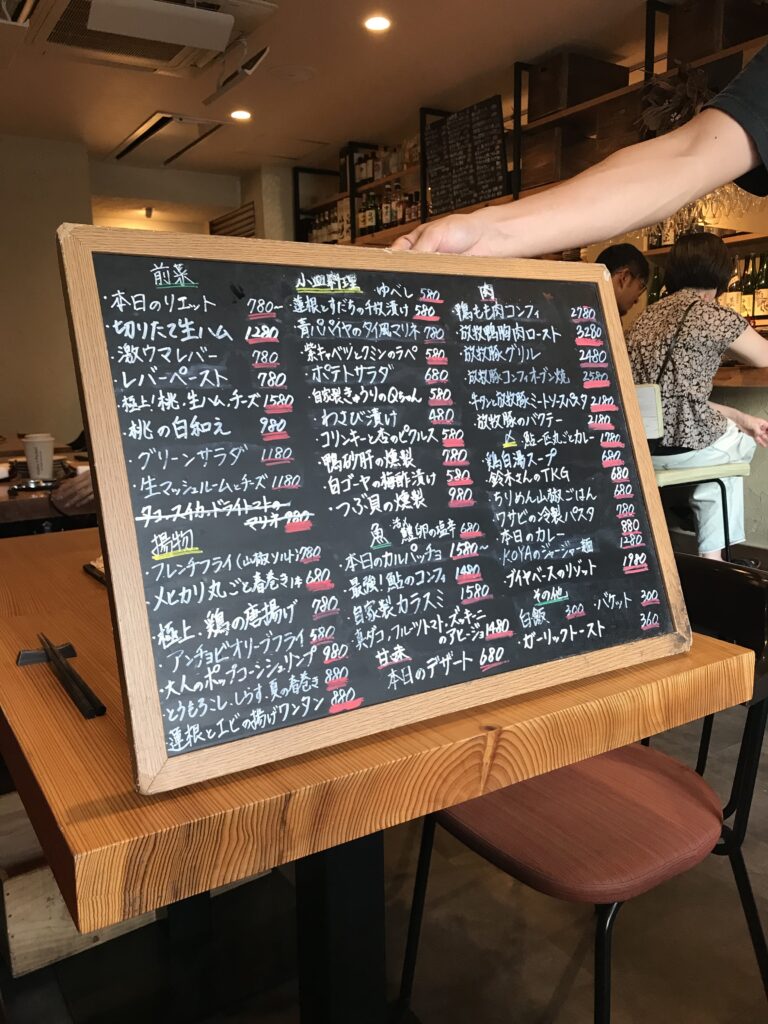 前菜
・本日のリエット 780〜
・切りたて生ハム 1280
・激ウマレバー 780
・レバーペースト 780
・極上!桃、生ハム、チーズ 1580
・桃の白和え 980
・グリーンサラダ 1180
・生マッシュルームとチーズ 1180
タコ、スイカ、ドライトマトの
マリネ 980
揚物
・フレンチフライ(山椒ソルト) 780
・メヒカリ丸ごと春巻き1本 680
・極上!鶏の唐揚げ 780
・アンチョビオリーブフライ 580
・大人のポップコーンシュリンプ 980
・とうもろこし、しらす、夏の春巻き 880
・蓮根とエビの揚げワンタン 880
小皿料理 ゆべし 580
・蓮根とすだちの千枚漬け 580
・青パパイヤのタイ風マリネ 780
・紫キャベツとクミンのラペ 580
・ポテトサラダ 680
・自家製きゅうりのQちゃん 580
・わさび漬け 480
・コリンキーと杏のピクルス 580
・鴨砂肝の燻製 780
・白ゴヤの梅酢漬け 580
・つぶ貝の燻製 980
魚
鱧卵の塩辛 680
・本日のカルパッチョ 1580〜
・最強!鮎のコンフィ 1480
・自家製カラスミ 1580
・真ダコ、フルーツトマト、ズッキーニ
のアヒージョ 1480
甘味
・本日のデザート 680
肉
・鴨もも肉コンフィ 2780
・放牧鴨胸肉ロースト 3280
・放牧豚グリル 2480
・放牧豚コンフィオーブン焼 2580
・牛タンと放牧豚ミートソースパスタ 2180
・放牧豚のバクテー 2180
〆 鮎一匹丸ごとカレー 1780
・鶏白湯スープ 680
・鈴木さんのTKG 680
・ちりめん山椒ごはん 680
・ワサビの冷製パスタ 780
・本日のカレー 880
・KOYAのジャージャー麺 1280
・ブイヤベースのリゾット 1980
その他
・白飯 300 ・バゲット 300
・ガーリックトースト 360